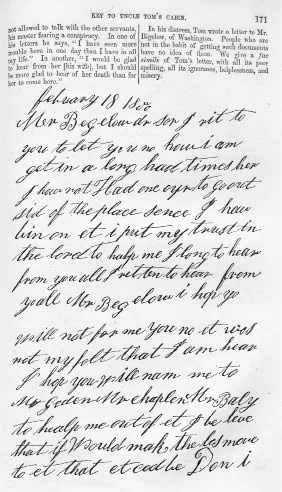 KEY TO UNCLE TOM'S CABIN.
171
not allowed to talk with the other servants,
his master fearing a conspiracy. In one of
his letters he says, "I have seen more
trouble here in one day than I have in all
my life." In another, "I would be glad
to hear from her [his wife], but I should
be more glad to hear of her death than for
her to come here."
In his distress, Tom wrote a letter to Mr.
Bigelow, of Washington. People who are
not in the habit of getting such documents
have no idea of them. We give a fac
simile of Tom's letter, with all its poor
spelling, all its ignorance, helplessness, and
misery.
february 18
Mr Begelow dr ser I rit to
you to let you no how i am
get in a long had times her
I haw not Had one oyr to go out
sid of the place sence I haw
bin on et i put my trust in
the lord to halp me I long to hear
from you all I ret ten to hear from
yo all Mr Begelow i hop yo
will not for me you no et was
not my folt that I am hear
I hop you will nam me to
Mr Geden Mr chaplen Mr Baly
to healp me out of et I be leve
that if Would mak the les move
to et that et cod be Don i